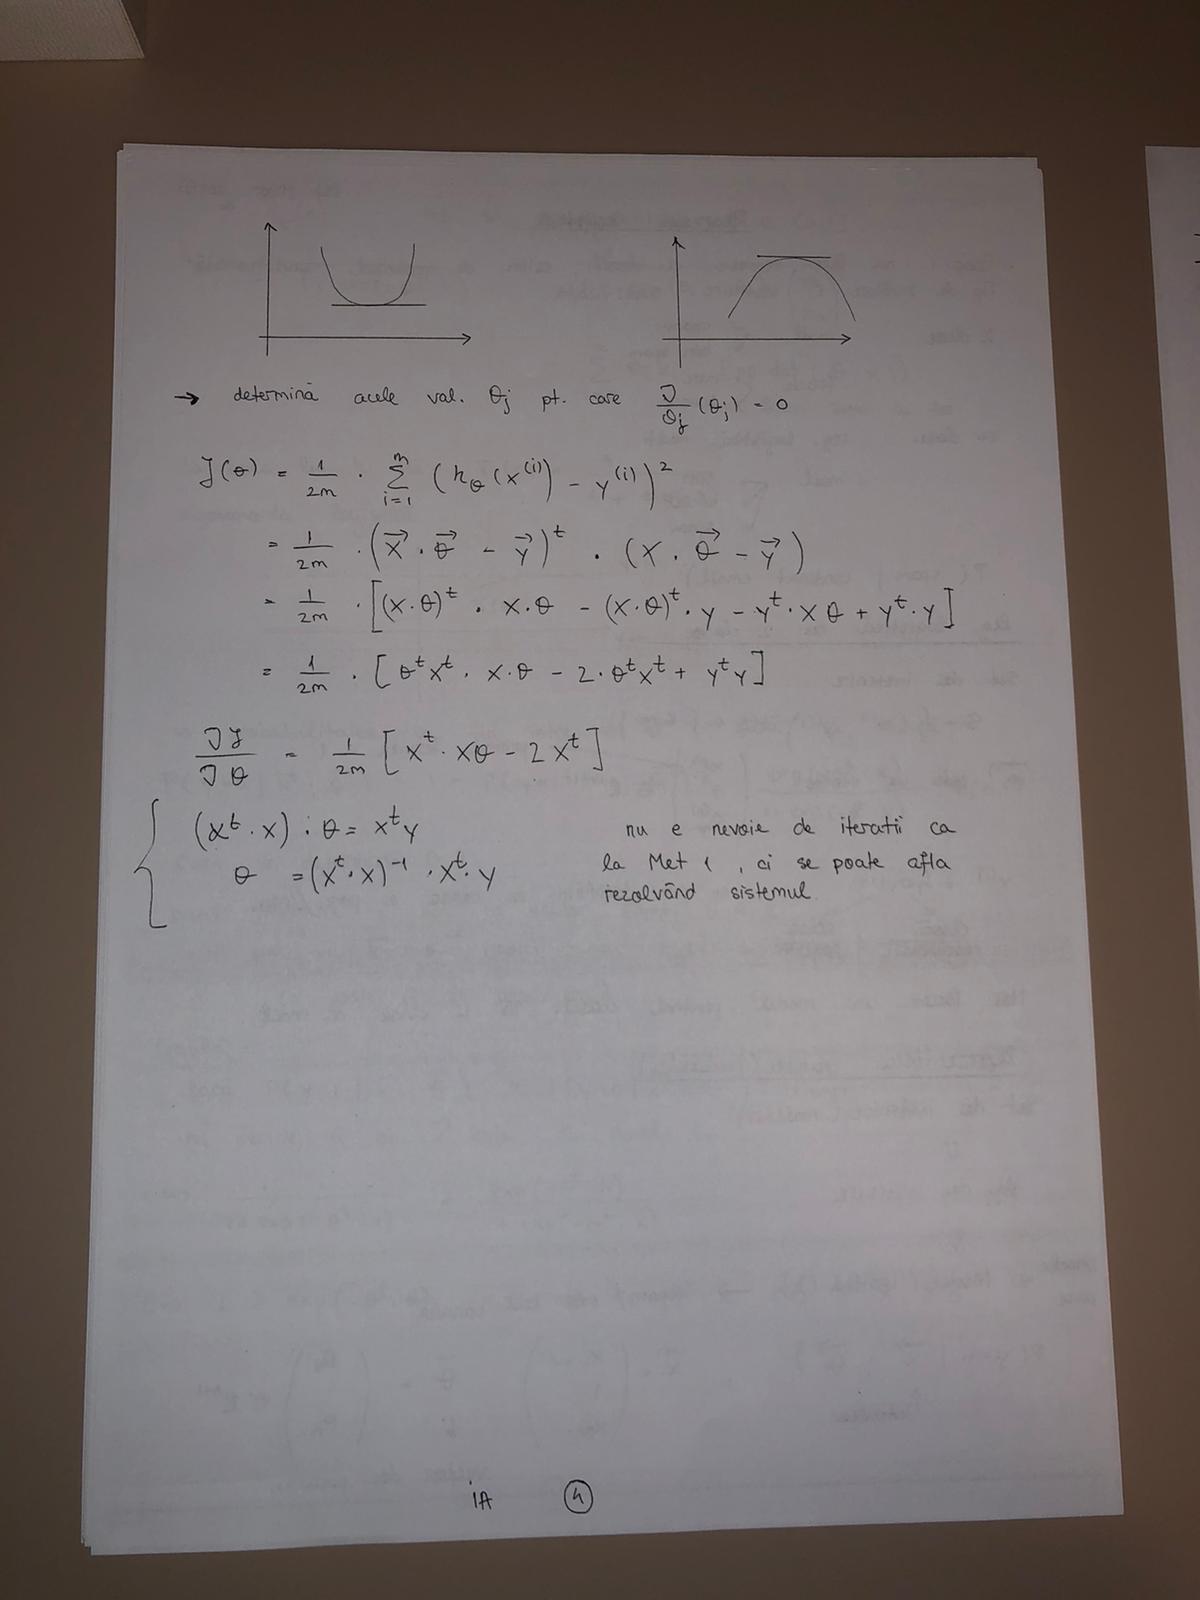 → determină acele val. θj pt. care J/θj (θj) = 0
J(θ) = 1/2m · Σ_{i=1}^{m} (h_θ(x^(i)) - y^(i))^2
= 1/2m · (X⃗ · θ⃗ - y⃗)^t · (X · θ⃗ - y⃗)
= 1/2m · [(X·θ)^t · X·θ - (X·θ)^t · y - y^t · Xθ + y^t · y]
= 1/2m · [θ^t X^t · X·θ - 2·θ^t X^t + y^t y]
∂J/∂θ = 1/2m [X^t · Xθ - 2X^t]
(X^t · X) · θ = X^t y
θ = (X^t · X)^-1 · X^t · y
nu e nevoie de iteratii ca
la Met 1, ci se poate afla
rezolvând sistemul.
iA 4